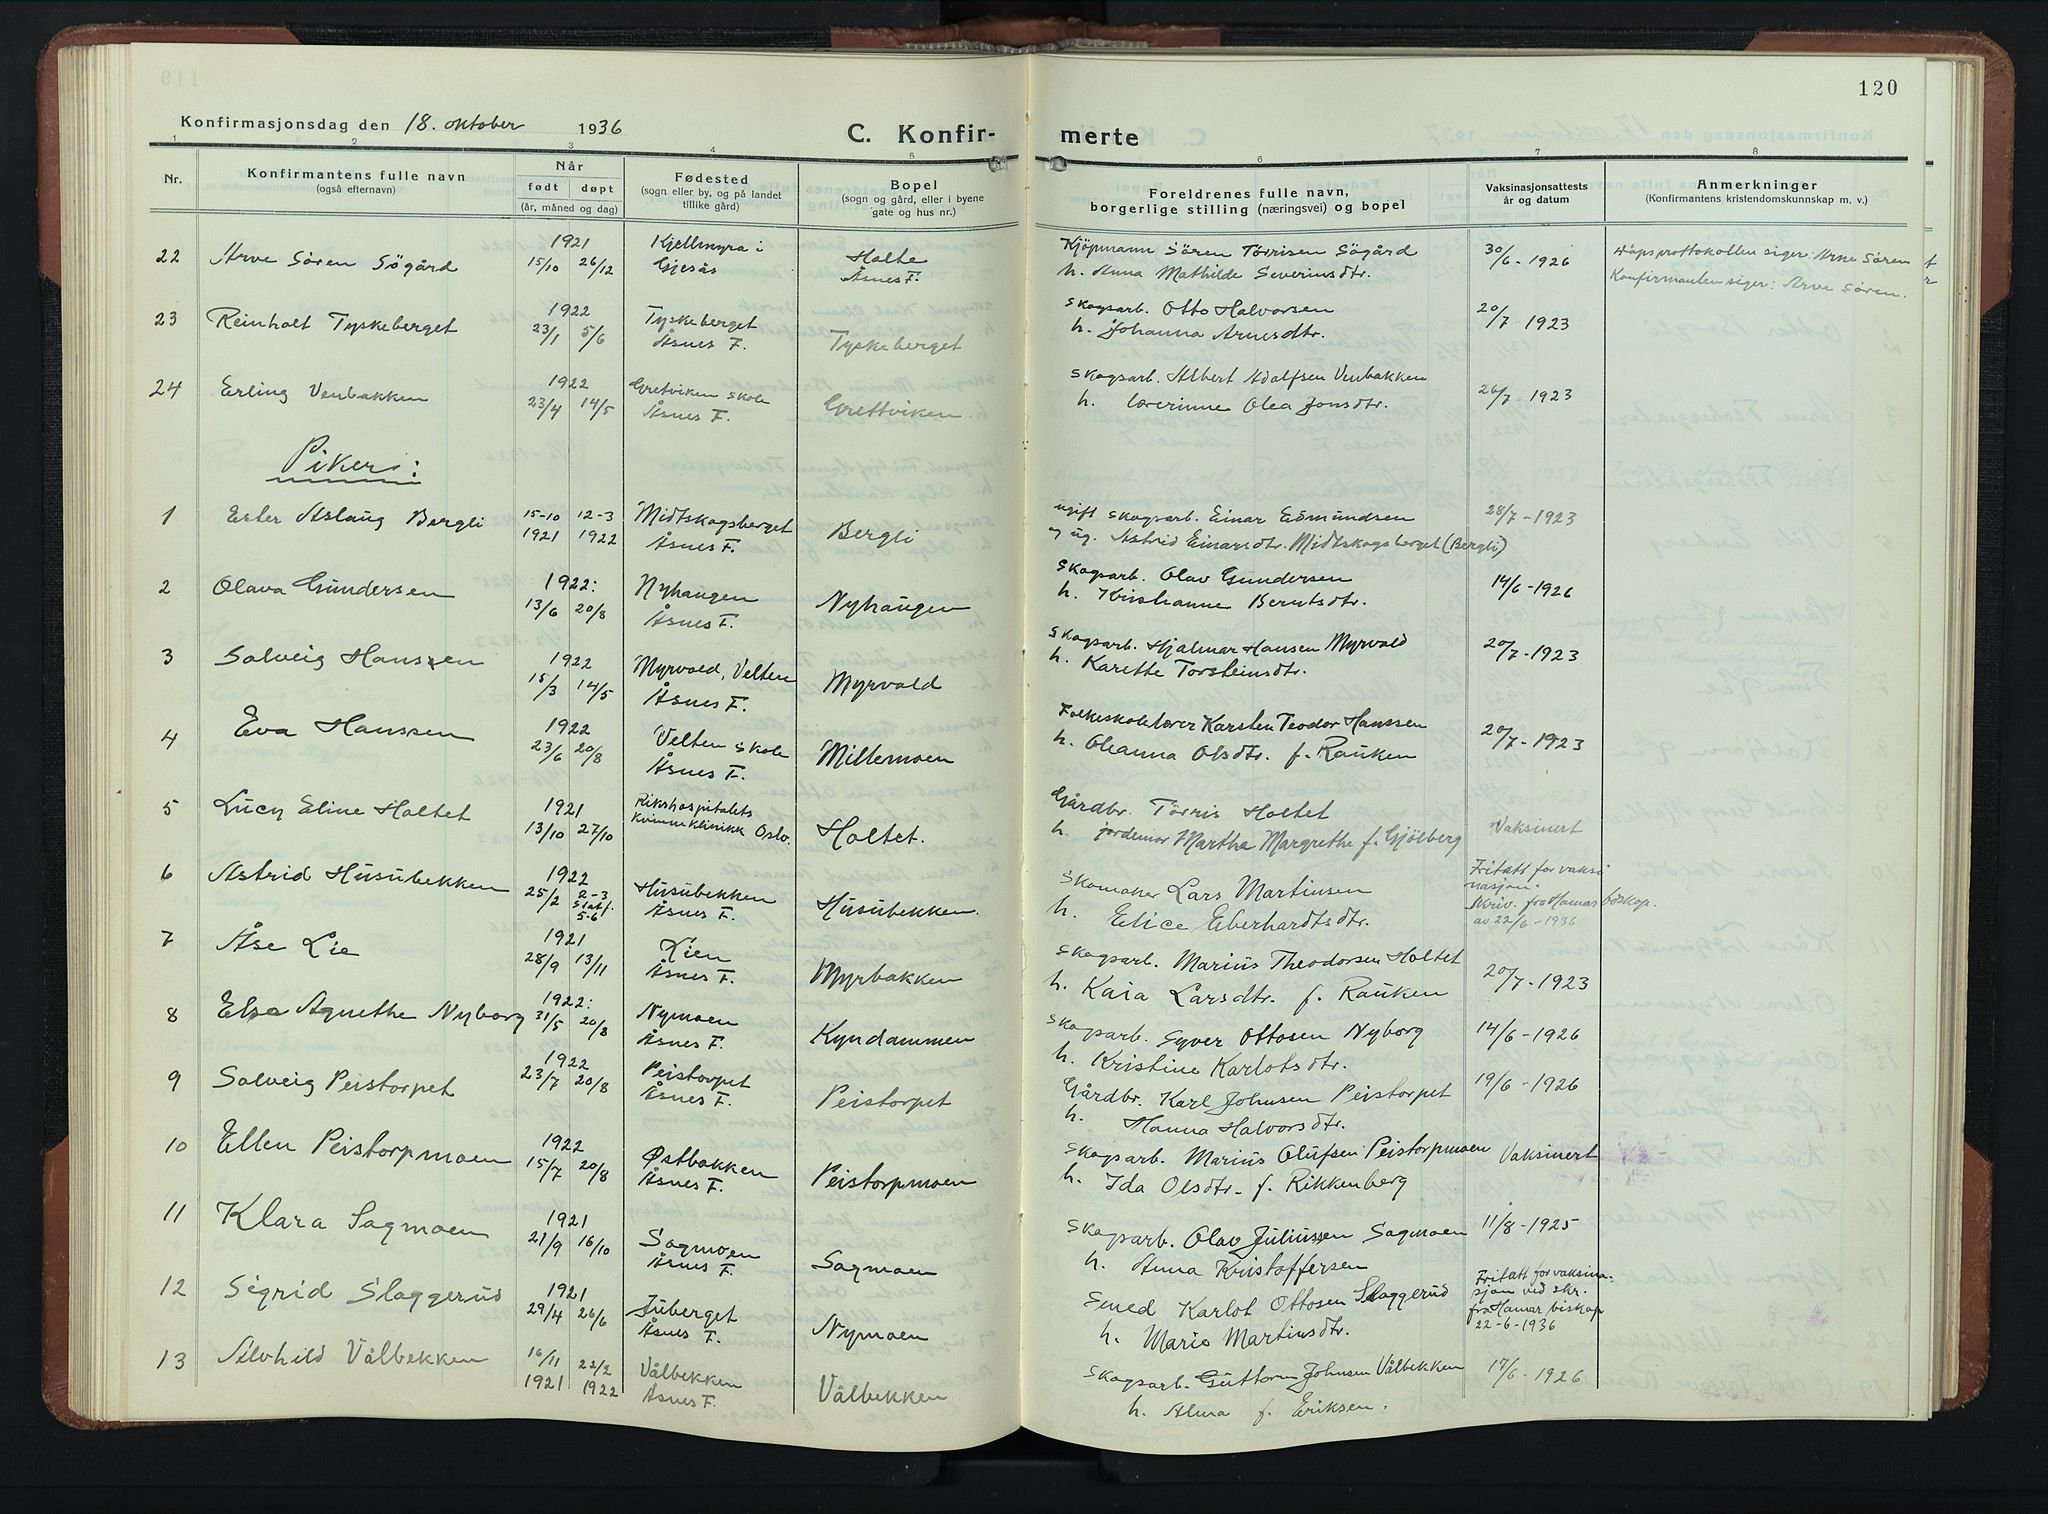 120
Konfirmasjonsdag den 18. oktober 1936
C. Konfir-
merte
1 2 3 4 5 6 7 8
Nr.
Konfirmantens fulle navn
(også efternavn)
Når
født døpt
(år, måned og dag)
Fødested
(sogn eller by, og på landet
tillike gård)
Bopel
(sogn og gård, eller i byene
gate og hus nr.)
Foreldrenes fulle navn,
borgerlige stilling (næringsvei) og bopel
Vaksinasjonsattests
år og datum
Anmerkninger
(Konfirmantens kristendomskunnskap m. v.)
22 Arve Sören Sögård 1921 15/10 26/12 Kjellmyra i Gjesås Holte Åsnes F. Kjöpmann Sören Törrisen Sögård 30/6 - 1926 Dåpsprottokollen siger: Arne Sören
h. Anna Mathilde Severinsdtr. Konfirmanten siger: Arve Sören.
23 Reinholt Tyskeberget 1922 23/1 5/6 Tyskeberget Åsnes F. Tyskeberget Skogsarb. Otto Halvorsen 20/7 - 1923
h. Johanna Arnesdtr.
24 Erling Venbakken 1922 23/4 14/5 Gretviken skole Åsnes F. Grettviken Skogsarb. Albert Adolfsen Venbakken 26/7 - 1923
h. lærerinne Olea Jonsdtr.
Piker:
1 Ester Aslaug Bergli 15-10 1921 12-3 1922 Midtskogsberget Åsnes F. Bergli ugift skogsarb. Einar Edmundsen 28/7 - 1923
og ug. Astrid Einarsdtr. Midtskogsberget (Bergli)
2 Olava Gundersen 1922: 13/6 20/8 Nyhaugen Åsnes F. Nyhaugen Skogsarb. Olav Gundersen 14/6 - 1926
h. Kristianne Berntsdtr.
3 Solveig Hanssen 1922 15/3 14/5 Myrvold, Velten Åsnes F. Myrvold Skogsarb. Hjalmar Hansen Myrvold 20/7 - 1923
h. Karette Torsteinsdtr.
4 Eva Hanssen 1922 23/6 20/8 Velten skole Åsnes F. Millemoen Folkeskolelærer Karsten Teodor Hanssen 20/7 - 1923
h. Oleanna Olsdtr. f. Rauken
5 Lucy Eline Holtet 1921 13/10 27/10 Rikshospitalets Kvinneklinikk Oslo. Holtet. Gårdbr. Törris Holtet Vaksinert
h. jordemor Martha Margrethe f. Gjölberg
6 Astrid Husubekken 1922 25/2 2-3 Stadf. 5-6 Husubekken Åsnes F. Husubekken. Skomaker Lars Martinsen Fritatt for vaksinasjon.
h. Elice Eberhardtsdtr. Skriv. fra Hamar biskop. av 22/6 - 1936
7 Åse Lie 1921 28/9 13/11 Lien Åsnes F. Myrbakken Skogsarb. Marius Theodorsen Holtet 20/7 - 1923
h. Kaia Larsdtr. f. Rauken
8 Else Agnethe Nyborg 1922: 31/5 20/8 Nymoen Åsnes F. Kyndammen Skogsarb. Syver Ottosen Nyborg 14/6 - 1926
h. Kristine Karlotsdtr.
9 Solveig Peistorpet 1922 23/7 20/8 Peistorpet Åsnes F. Peistorpet Gårdbr. Karl Johnsen Peistorpet 19/6 - 1926
h. Hanna Halvorsdtr.
10 Ellen Peistorpmoen 1922 15/7 20/8 Østbakken Åsnes F. Peistorpmoen Skogsarb. Marius Olufsen Peistorpmoen Vaksinert
h. Ida Olsdtr. f. Rikkenberg
11 Klara Sagmoen 1921 21/9 16/10 Sagmoen Åsnes F. Sagmoen Skogsarb. Olav Juliussen Sagmoen 11/8 - 1925
h. Anna Kristoffersen
12 Sigrid Slaggerud 1921 29/4 26/6 Juberget Åsnes F. Nymoen Smed Karlot Ottosen Slaggerud Fritatt for vaksinasjon ved skr.
h. Marie Martinsdtr. fra Hamar biskop 22-6-1936
13 Alvhild Vålbekken 16/11 1921 22/2 1922 Vålbekken Åsnes F. Vålbekken Skogsarb. Guttorm Johnsen Vålbekken 17/6 - 1926
h. Alma f. Eriksen.